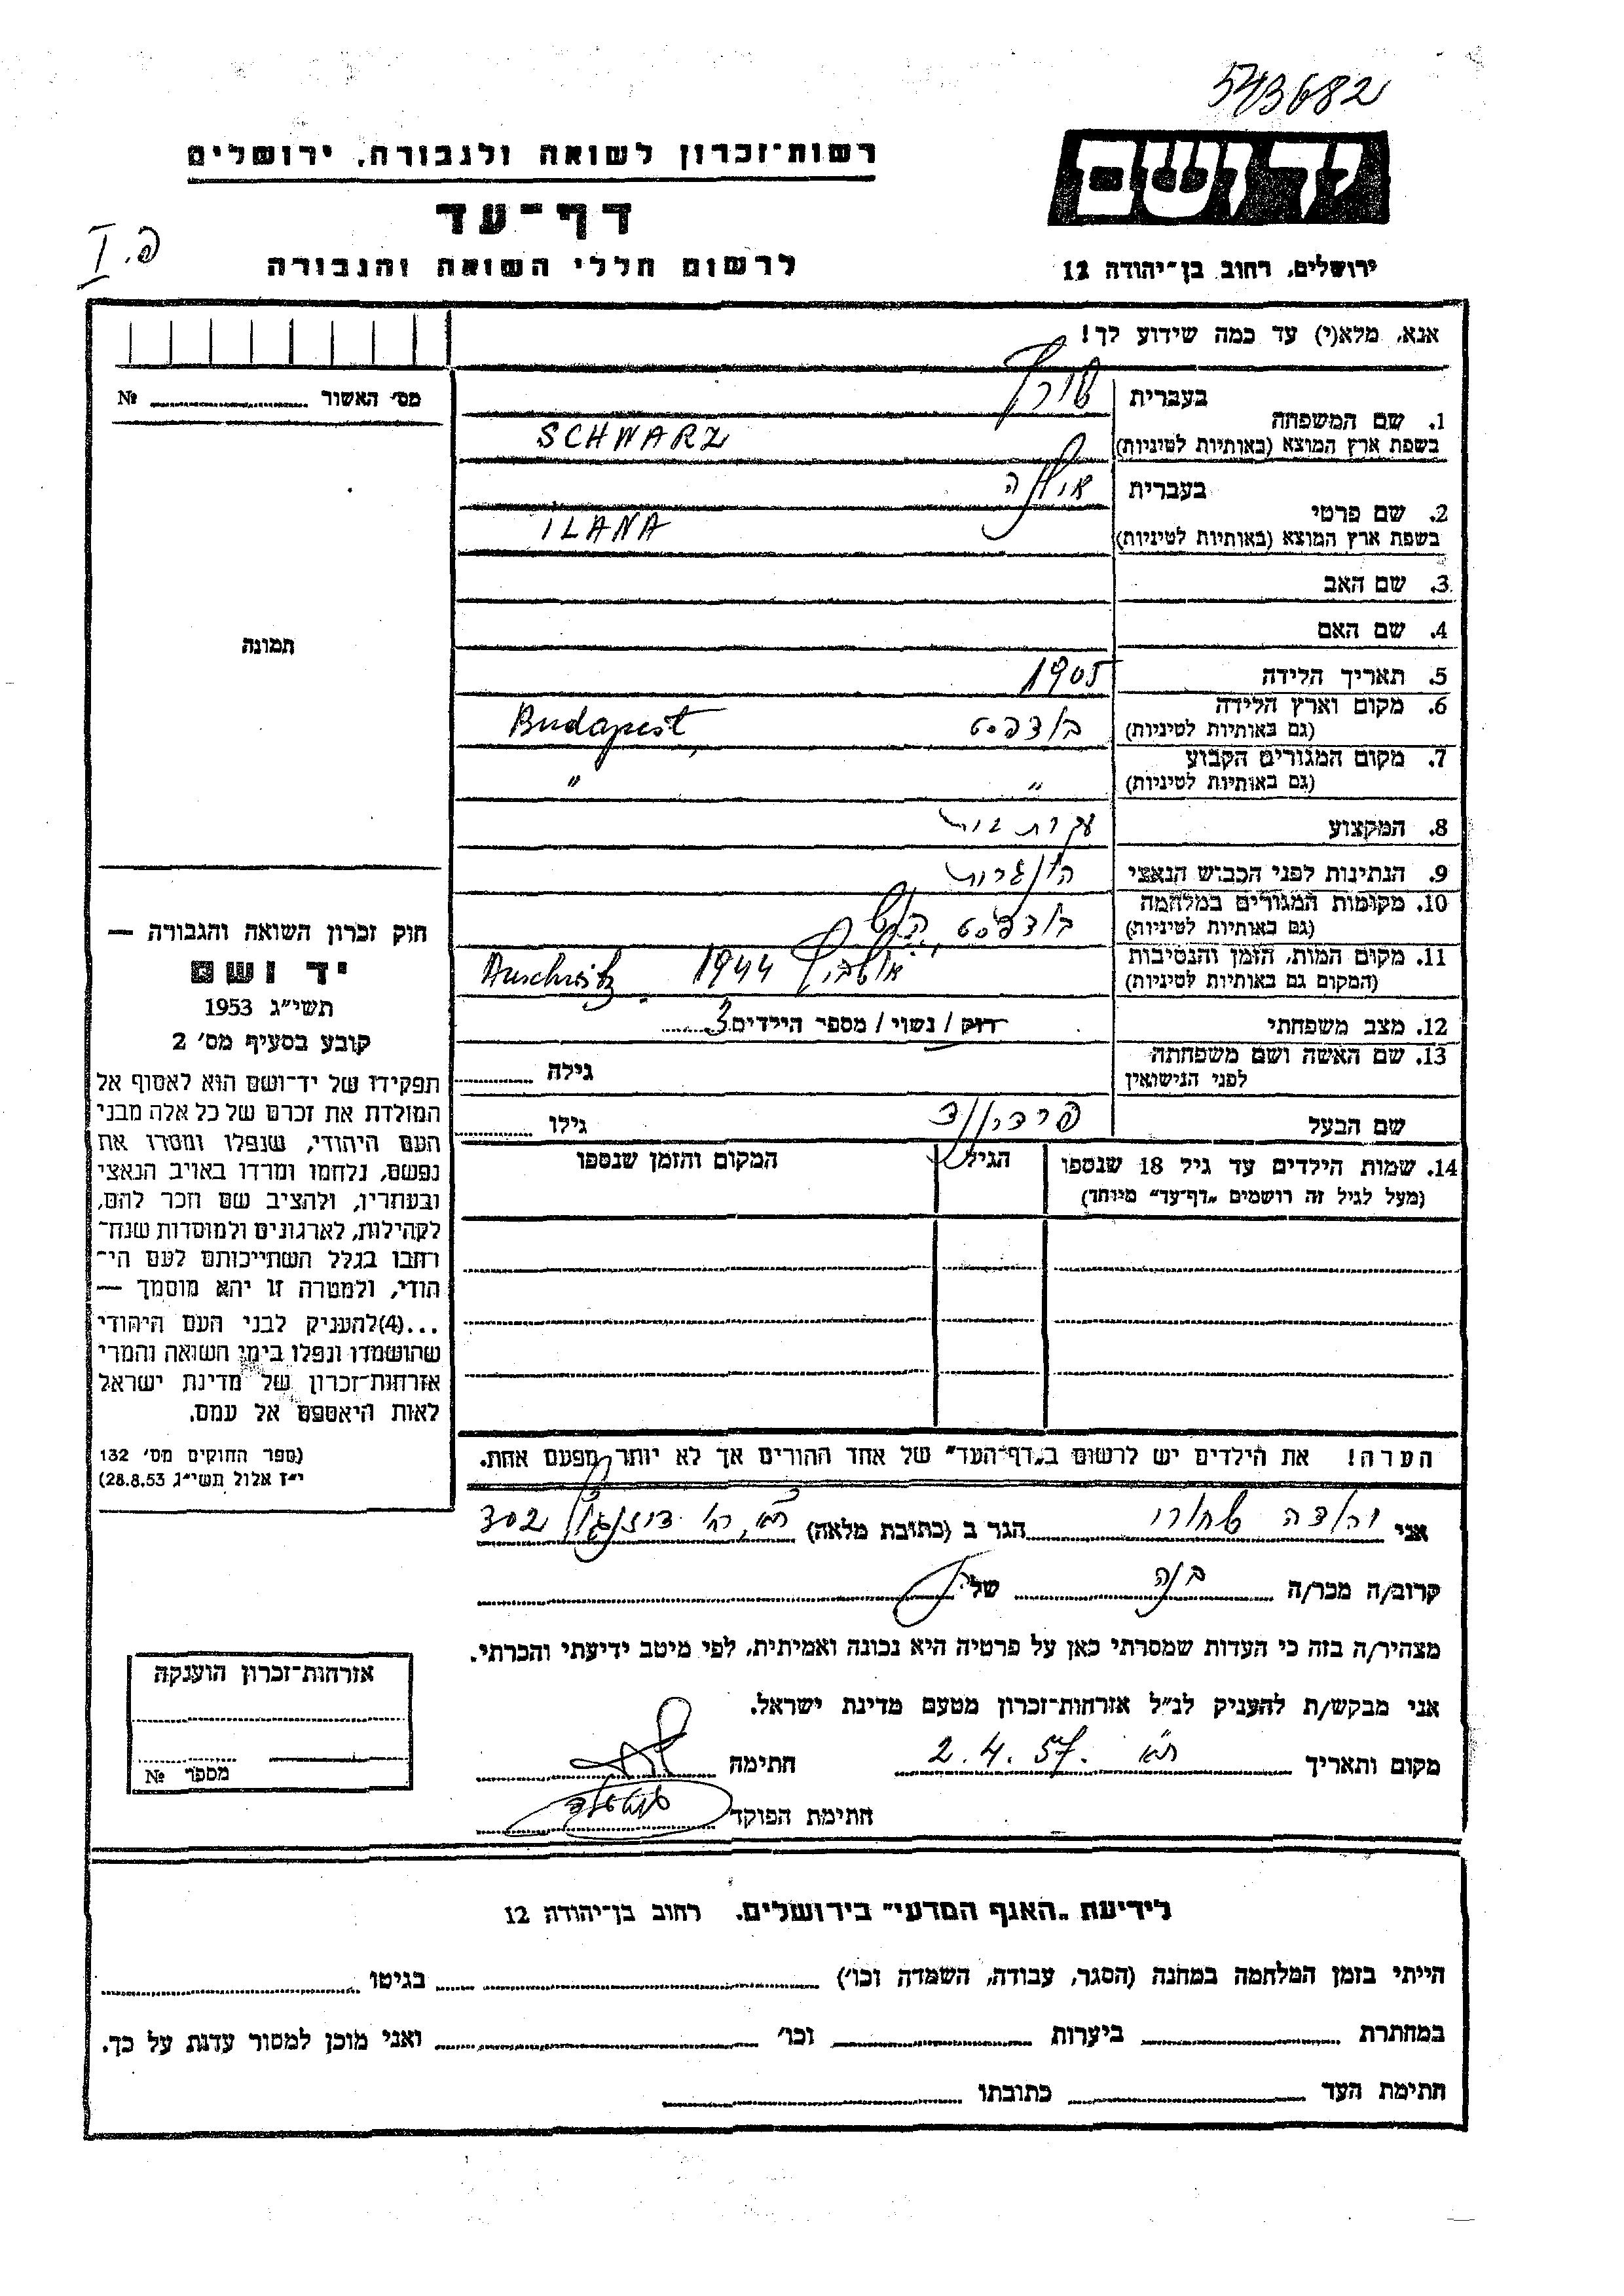 543682
יד ושם
רשות-זכרון לשואה ולגבורה, ירושלים
דף-עד
לרשום חללי השואה והגבורה
ירושלים, רחוב בן-יהודה 12
פ. I
אנא, מלא(י) עד כמה שידוע לך!
מס׳ האשור № 
1. שם המשפחה
בעברית שורץ
בשפת ארץ המוצא (באותיות לטיניות) SCHWARZ
2. שם פרטי
בעברית
בשפת ארץ המוצא (באותיות לטיניות) ILANA
3. שם האב
4. שם האם
תמונה
5. תאריך הלידה 1905
6. מקום וארץ הלידה
(גם באותיות לטיניות) בודפסט Budapest,
7. מקום המגורים הקבוע
(גם באותיות לטיניות) " "
8. המקצוע עקרת בית
9. הנתינות לפני הכבוש הנאצי הונגרית
10. מקומות המגורים במלחמה
(גם באותיות לטיניות) בודפסט,
11. מקום המות, הזמן והנסיבות
(המקום גם באותיות לטיניות) אושביץ 1944 Auschwitz
12. מצב משפחתי רוק / נשוי / מספר הילדים 3
13. שם האשה ושם משפחתה
לפני הנישואין גילה
שם הבעל גילו
14. שמות הילדים עד גיל 18 שנספו הגיל המקום והזמן שנספו
(מעל לגיל זה רושמים „דף-עד״ מיוחד)
חוק זכרון השואה והגבורה —
יד ושם
תשי״ג 1953
קובע בסעיף מס׳ 2
תפקידו של יד-ושם הוא לאסוף אל
המולדת את זכרם של כל אלה מבני
העם היהודי, שנפלו ומסרו את
נפשם, נלחמו ומרדו באויב הנאצי
ובעוזריו, ולהציב שם וזכר להם,
לקהילות, לארגונים ולמוסדות שנח־
רבו בגלל השתייכותם לעם הי־
הודי, ולמטרה זו יהא מוסמך —
...(4)להעניק לבני העם היהודי
שהושמדו ונפלו בימי השואה והמרי
אזרחות-זכרון של מדינת ישראל
לאות היאספם אל עמם.
(ספר החוקים מס׳ 132
י״ז אלול תשי״ג 28.8.53)
הערה! את הילדים יש לרשום ב„דף-העד״ של אחד ההורים אך לא יותר מפעם אחת.
אני יהודה שחורי הגר ב (כתובת מלאה) ת״א, רח׳ דיזנגוף 302
קרוב/ה מכר/ה בנה של
מצהיר/ה בזה כי העדות שמסרתי כאן על פרטיה היא נכונה ואמיתית, לפי מיטב ידיעתי והכרתי.
אני מבקש/ת להעניק לנ״ל אזרחות-זכרון מטעם מדינת ישראל.
מקום ותאריך ת״א 2.4.57. חתימה
חתימת הפוקד
אזרחות-זכרון הוענקה
מספר №
לידיעת „האגף המדעי״ בירושלים, רחוב בן-יהודה 12
הייתי בזמן המלחמה במחנה (הסגר, עבודה, השמדה וכו׳) בגיטו
במחתרת ביערות וכו׳ ואני מוכן למסור עדות על כך.
חתימת העד כתובתו